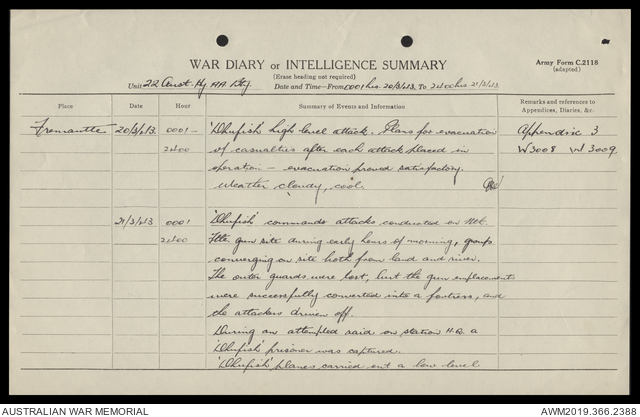 WAR DIARY or INTELLIGENCE SUMMARY
(Erase heading not required)
Army Form C.2118
(adapted)
Unit 22 Aust. Hy. AA. Bty. Date and Time—From 0001 hrs. 20/3/43. To 2400 hrs 21/3/43.
Place Date Hour Summary of Events and Information Remarks and references to Appendices, Diaries, &c.
Fremantle 20/3/43. 0001 - 'Dhufish' high level attack. Plans for evacuation Appendix 3
2400 of casualties after each attack placed in W3008 W3009.
operation — evacuation proved satisfactory.
Weather cloudy, cool.
21/3/43 0001 'Dhufish' commando attacks conducted on Nth.
2400 Ftle gun site during early hours of morning, groups
converging on site both from land and river.
The outer guards were lost, but the gun emplacements
were successfully converted into a fortress, and
the attackers driven off.
During an attempted raid on station H.Q. a
'Dhufish' prisoner was captured.
'Dhufish' planes carried out a low level
AUSTRALIAN WAR MEMORIAL
AWM2019.366.2388